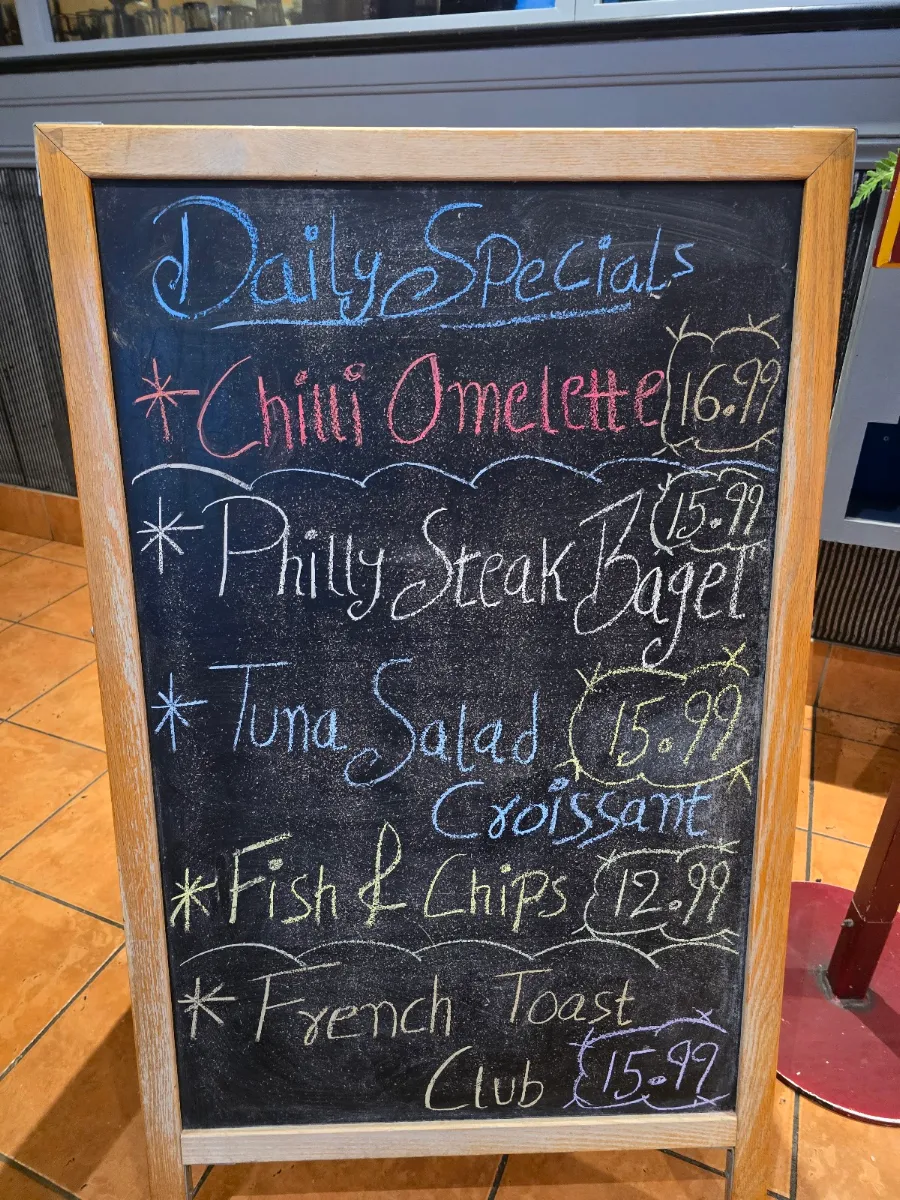 Daily Specials
* Chilli Omelette 16.99
* Philly Steak Bagel 15.99
* Tuna Salad 15.99
Croissant
* Fish & Chips 12.99
* French Toast
Club 15.99